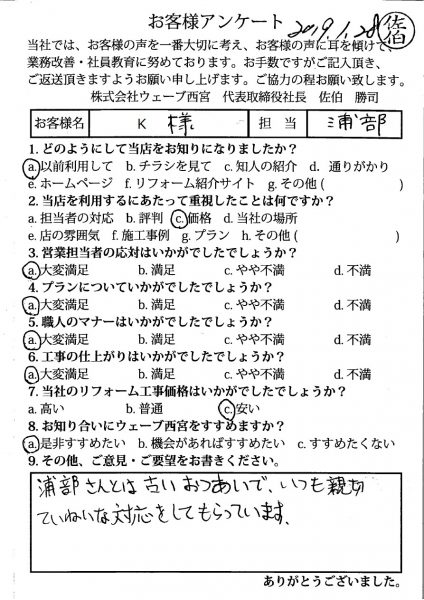 お客様アンケート 2019.1.28 佐伯
当社では、お客様の声を一番大切に考え、お客様の声に耳を傾けて、
業務改善・社員教育に努めております。お手数ですがご記入頂き、
ご返送頂きますようお願い申し上げます。ご協力の程お願い致します。
株式会社ウェーブ西宮 代表取締役社長 佐伯 勝司
お客様名 K 様 担当 浦部
1. どのようにして当店をお知りになりましたか？
a. 以前利用して b. チラシを見て c. 知人の紹介 d. 通りがかり
e. ホームページ f. リフォーム紹介サイト g. その他 ( )
2. 当店を利用するにあたって重視したことは何ですか？
a. 担当者の対応 b. 評判 c. 価格 d. 当社の場所
e. 店の雰囲気 f. 施工事例 g. プラン h. その他 ( )
3. 営業担当者の応対はいかがでしたでしょうか？
a. 大変満足 b. 満足 c. やや不満 d. 不満
4. プランについていかがでしたでしょうか？
a. 大変満足 b. 満足 c. やや不満 d. 不満
5. 職人のマナーはいかがでしたでしょうか？
a. 大変満足 b. 満足 c. やや不満 d. 不満
6. 工事の仕上がりはいかがでしたでしょうか？
a. 大変満足 b. 満足 c. やや不満 d. 不満
7. 当社のリフォーム工事価格はいかがでしたでしょうか？
a. 高い b. 普通 c. 安い
8. お知り合いにウェーブ西宮をすすめますか？
a. 是非すすめたい b. 機会があればすすめたい c. すすめたくない
9. その他、ご意見・ご要望をお書きください。
浦部さんとは古いおつきあいで、いつも親切
ていねいな対応をしてもらっています。
ありがとうございました。